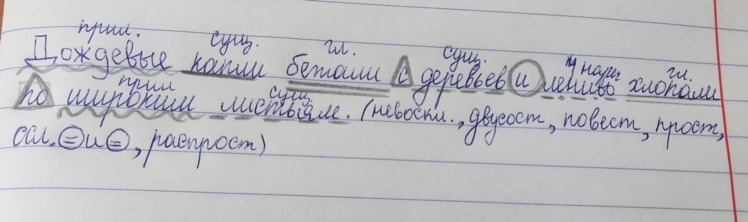 прил. сущ. гл. сущ. нареч гл.
Дождевые капли бежали с деревьев и лениво хлопали
прил сущ.
по широким листьям. (невоскл., двусост, повест, прост,
осл. и , распрост)